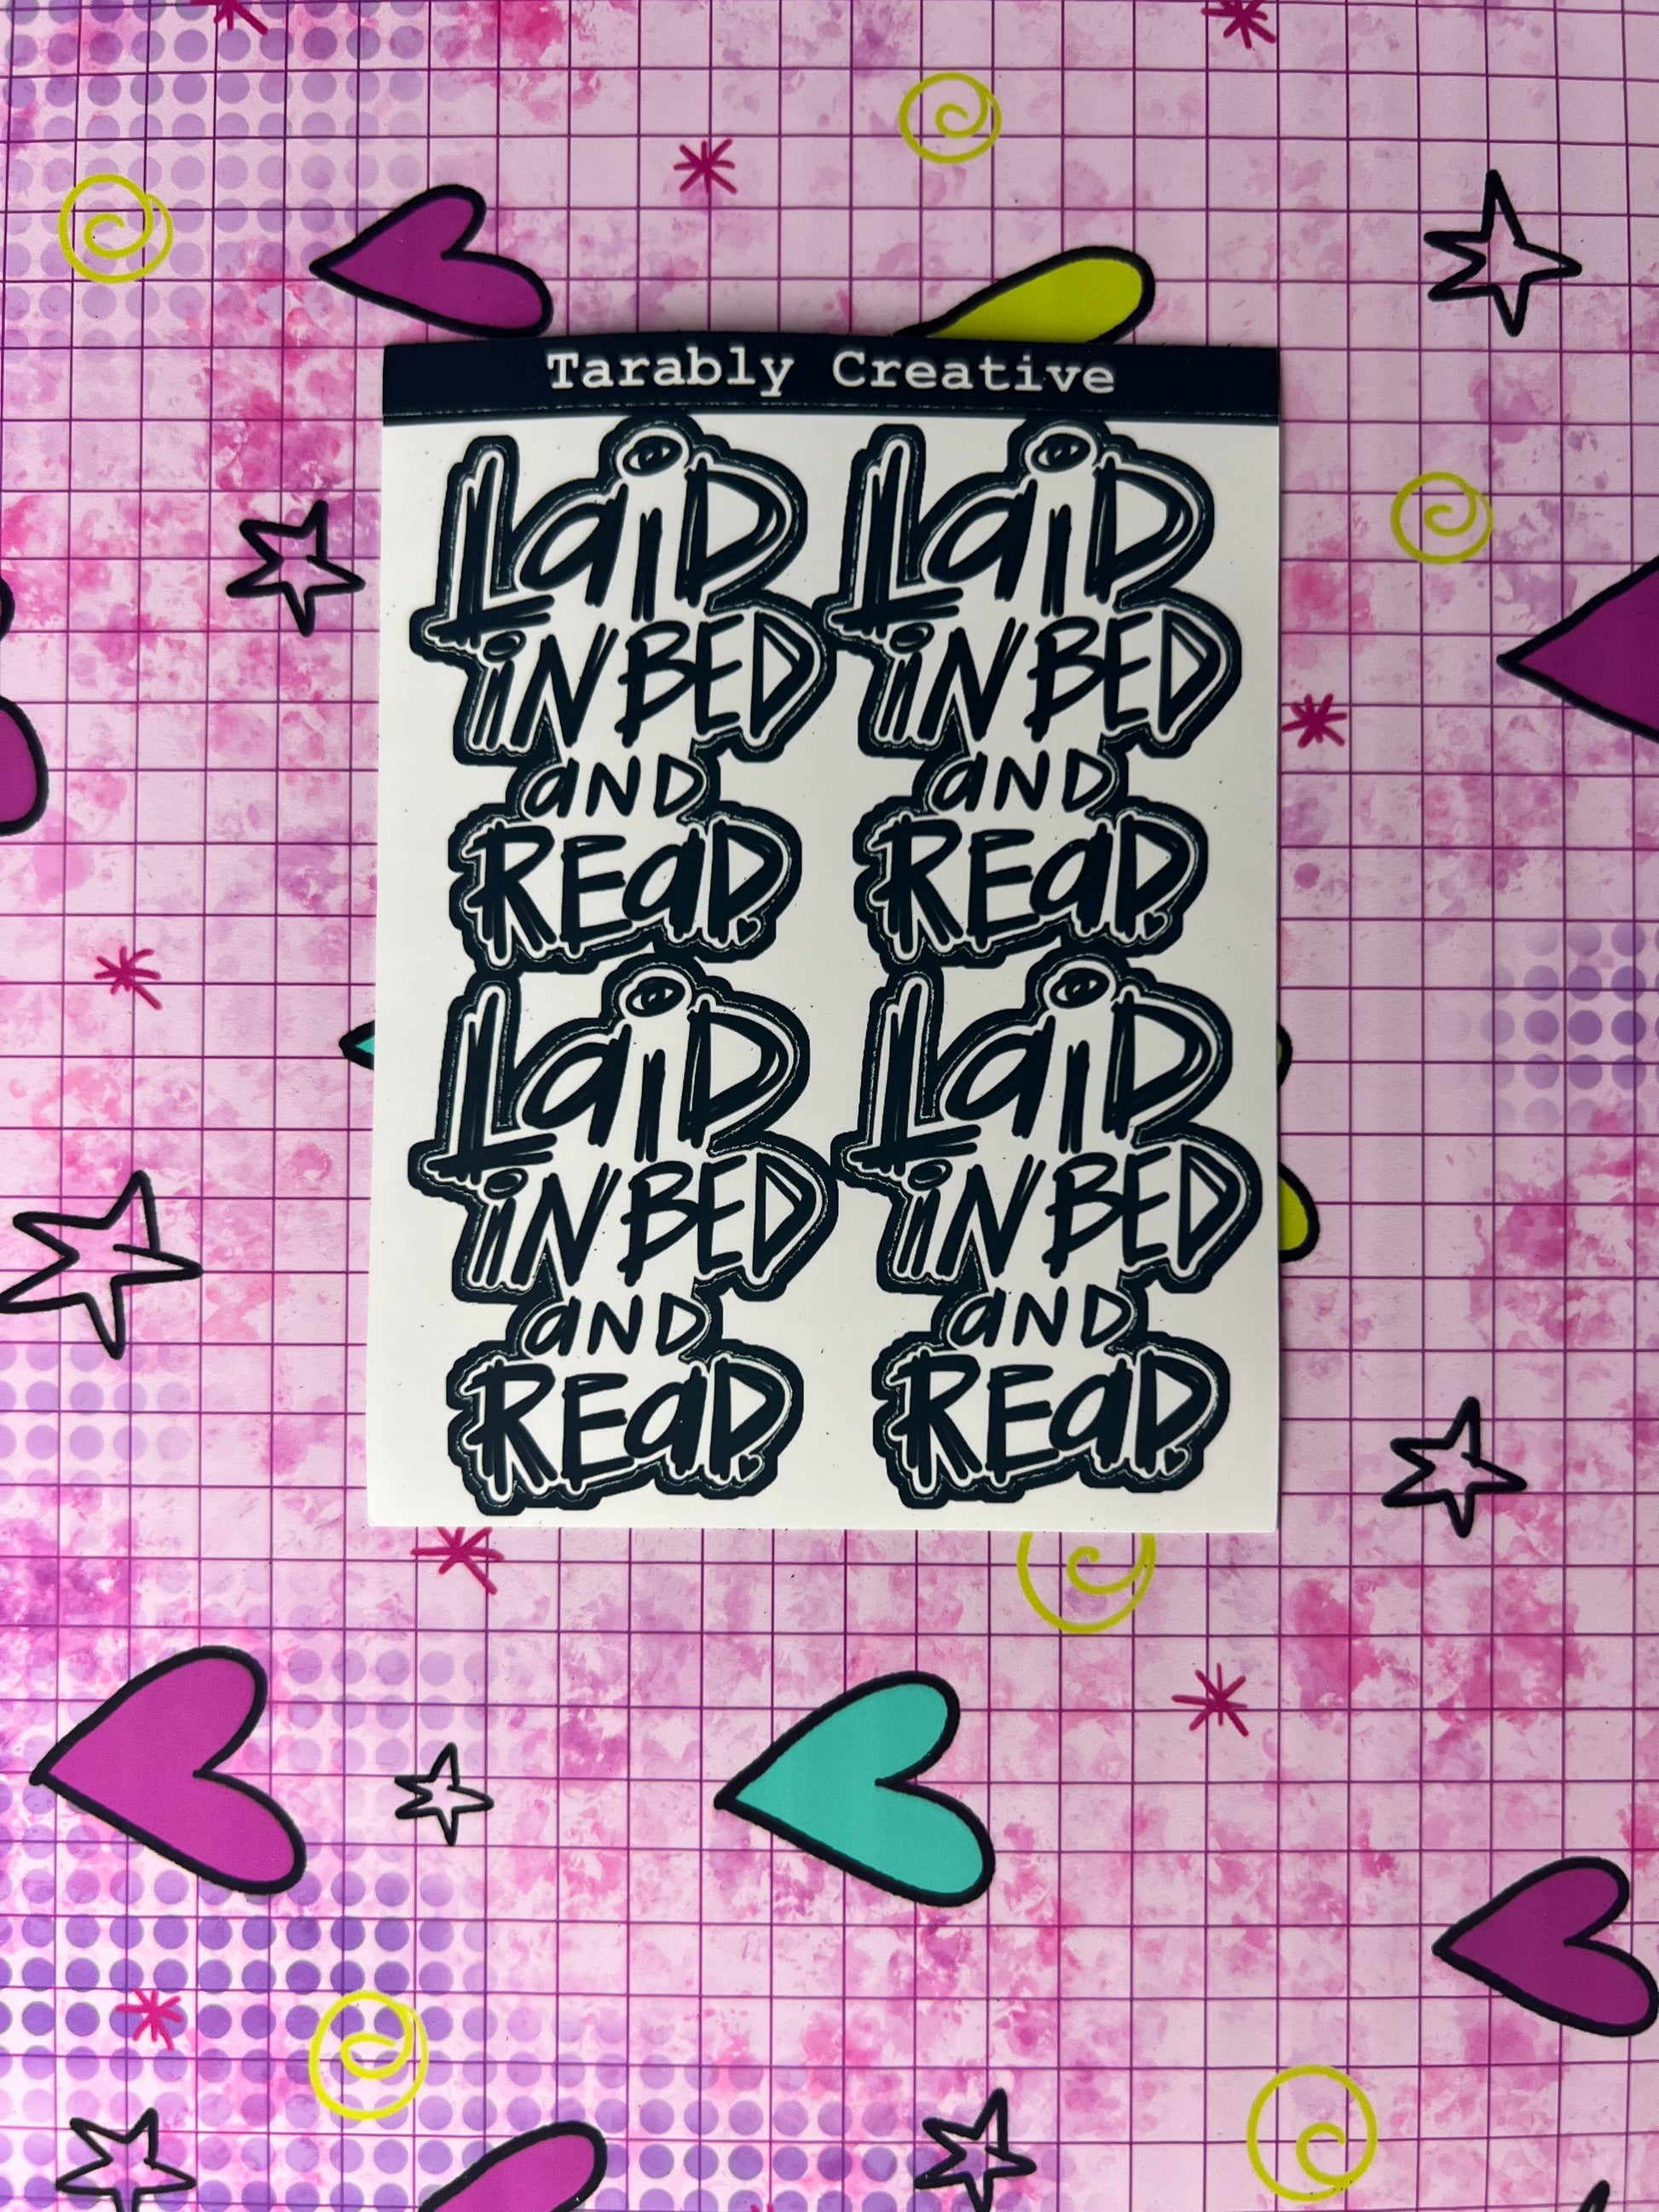 Tarably Creative
LaiD
iN BED
aND
REaD.
LaiD
iN BED
aND
REaD.
LaiD
iN BED
aND
REaD.
LaiD
iN BED
aND
REaD.